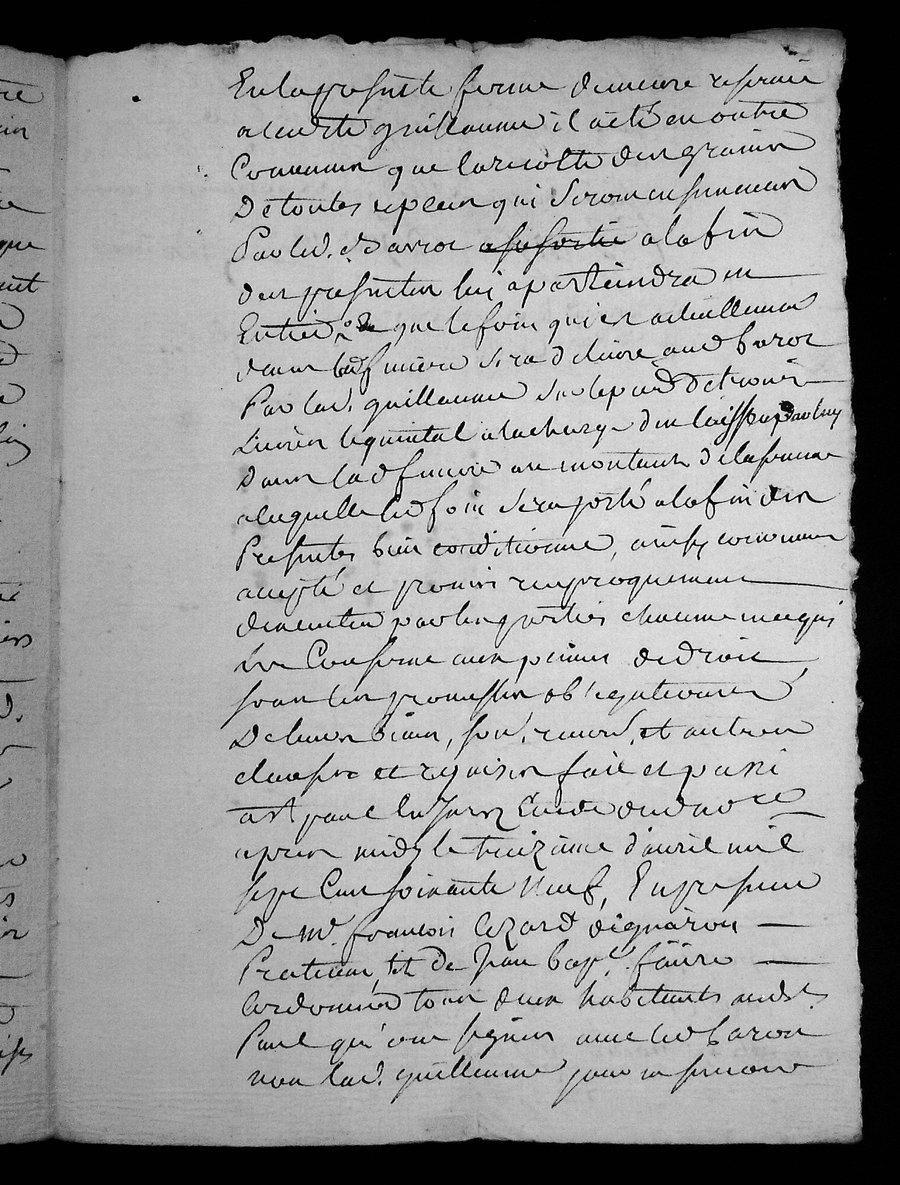 En la presente ferme demeure reservée
a leurte guillaume il a été en outre
Convenun que la recolte des grains
De toutes especes qui seront ensemencés
Par led. Baroc a sa sortie a la fin
des presentes lui apartiendra en
Entier, & que le foin qui est actuellement
dans lad. finiere sera delivré aud. baroc
Par lad. guillaume sur le pied de trois
Livres le quintal a la charge d'en laisser
Dans lad. finiere au montant de la somme
a laquelle led. foin sera porté a la fin des
Presentes bien conditionné, ainsy convenu
accepté et promis reciproquement
par les parties chacune en ce qui
les Conserne aux peines de droit
sous les promesses obligations
De leurs biens, soub. renonc. et autres
clauses requises fait et passé
a St paul Etude dud. no.re
apres midy le treizieme d'avril mil
sept Cent soixante Neuf, En presence
De Mr. francois Cozard
Praticien, et De Jean bapt. faure
Cordonnier tous deux habitants aud. St.
Paul qui ont signés avec led. baron
non lad. guillaume pour ne savoir